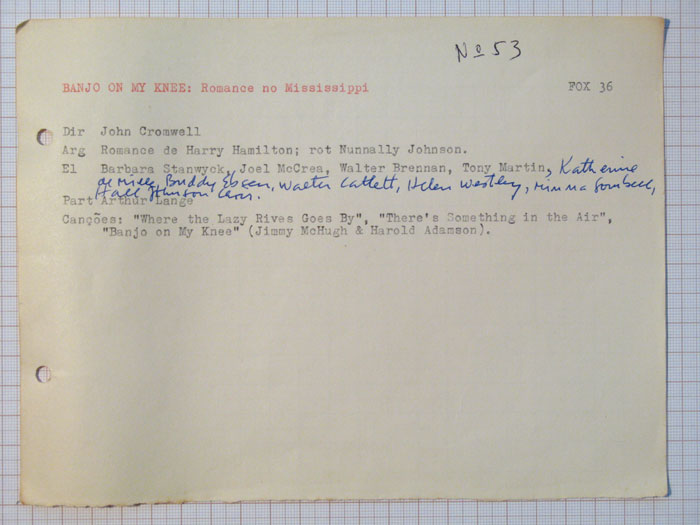 Nº 53
BANJO ON MY KNEE: Romance no Mississippi FOX 36
Dir John Cromwell
Arg Romance de Harry Hamilton; rot Nunnally Johnson.
El Barbara Stanwyck, Joel McCrea, Walter Brennan, Tony Martin, Katherine
de Mille, Buddy Ebsen, Walter Catlett, Helen Westley, Minna Gombell,
Hall Johnson
Part Arthur Lange
Canções: "Where the Lazy Rives Goes By", "There's Something in the Air",
"Banjo on My Knee" (Jimmy McHugh & Harold Adamson).